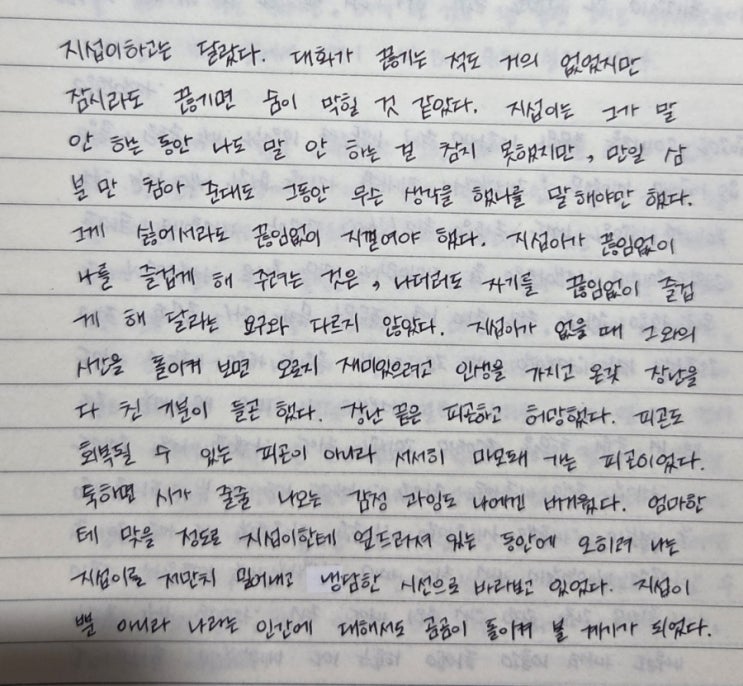 지섭이하고는 달랐다. 대화가 끊기는 적도 거의 없었지만
잠시라도 끊기면 숨이 막힐 것 같았다. 지섭이는 그가 말
안 하는 동안 나도 말 안 하는 걸 참지 못했지만, 만일 삼
분 만 참아 준대도 그동안 무슨 생각을 했나를 말해야만 했다.
그게 싫어서라도 끊임없이 지껄여야 했다. 지섭이가 끊임없이
나를 즐겁게 해 주려는 것은, 나더러도 자기를 끊임없이 즐겁
게 해 달라는 요구와 다르지 않았다. 지섭이가 없을 때 그와의
시간을 돌이켜 보면 오로지 재미있으려고 인생을 가지고 온갖 장난을
다 친 기분이 들곤 했다. 장난 끝은 피곤하고 허망했다. 피곤도
회복될 수 있는 피곤이 아니라 서서히 마모돼 가는 피곤이었다.
툭하면 시가 줄줄 나오는 감정 과잉도 나에겐 버거웠다. 엄마한
테 맞을 정도로 지섭이한테 엎드러져 있는 동안에 오히려 나는
지섭이를 저만치 밀어내고 냉담한 시선으로 바라보고 있었다. 지섭이
뿐 아니라 나라는 인간에 대해서도 곰곰이 돌이켜 볼 계기가 되었다.